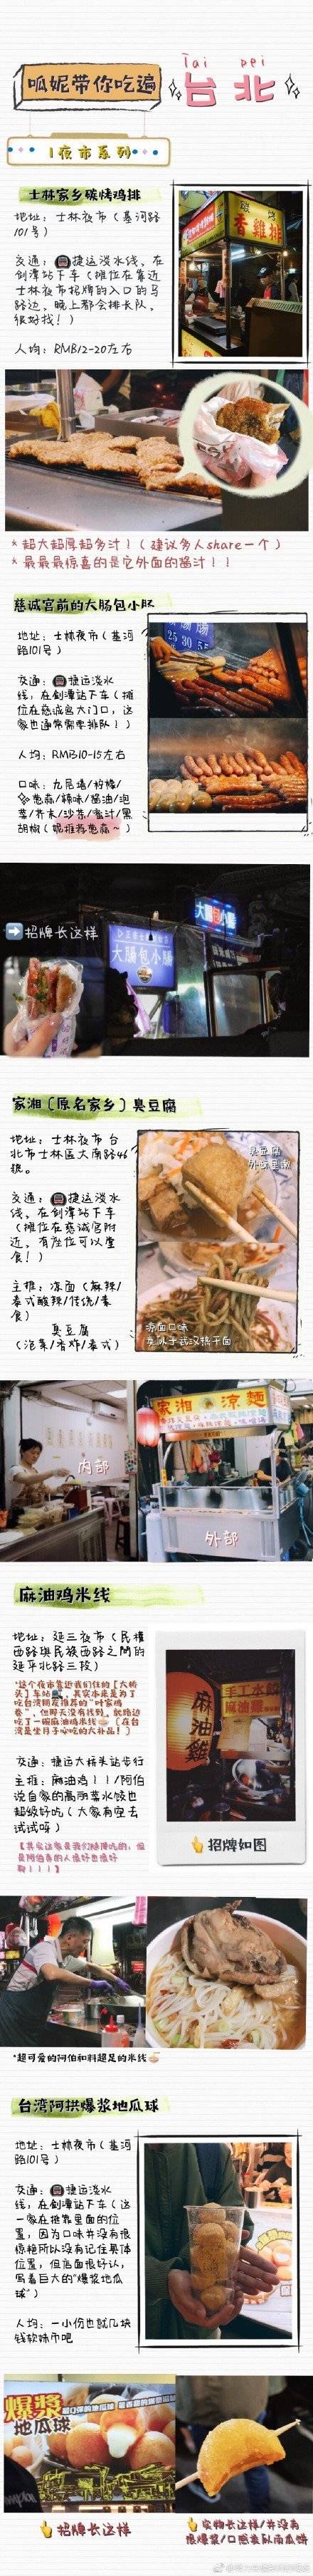 Tai pei
呱妮带你吃遍
台北
1夜市系列
士林家乡碳烤鸡排
地址：士林夜市（基河路
101号）
交通：捷运淡水线，在
剑潭站下车（摊位在靠近
士林夜市招牌的入口的马
路边，晚上都会排长队，
很好找！）
人均：RMB12-20左右
香雞排
*超大超厚超多汁！（建议多人share一个）
*最最最惊喜的是它外面的酱汁！！
慈诚宫前的大肠包小肠
地址：士林夜市（基河
路101号）
交通：捷运淡水
线，在剑潭站下车（摊
位在慈诚宫大门口，这
家也通常需要排队！）
人均：RMB10-15左右
口味：九层塔/柠檬/
葱蒜/辣味/酱油/泡
菜/芥末/沙茶/蜜汁/黑
胡椒（妮推荐葱蒜～）
25 30 55
招牌长这样
大腸包小腸
大腸包小腸
家湘（原名家乡）臭豆腐
地址：士林夜市 台
北市士林區大南路46
號。
交通：捷运淡水
线，在剑潭站下车
（摊位在慈诚宫附
近，有座位可以堂
食！）
主推：凉面（麻辣/
泰式酸辣/传统/素
食）
臭豆腐
（泡菜/香炸/泰式）
臭豆腐
外酥里嫩
凉面口味
类似于武汉热干面
内部
家湘 涼麵
外部
麻油鸡米线
地址：延三夜市（民權
西路與民族西路之間的
延平北路三段）
*这个夜市靠近我们住的【大桥
头】车站，其实本来是为了
吃台湾朋友推荐的“叶家鸡
卷”，但那天没有找到。就路边
吃了一碗麻油鸡米线（在台
湾是坐月子必吃的大补品！）
交通：捷运大桥头站步行
主推：麻油鸡！！/阿伯
说自家的高丽菜水饺也
超级好吃（大家有空去
试试呀）
【其实这家是我们随便吃的，但
是阿伯真的人很好也很好
聊！！！】
麻油雞
手工水餃
麻油雞
招牌如图
*超可爱的阿伯和料超足的米线
台湾阿拱爆浆地瓜球
地址：士林夜市（基河
路101号）
交通：捷运淡水
线，在剑潭站下车（这
一家在挺靠里面的位
置，因为口味并没有很
惊艳所以没有记住具体
位置，但店面很好认，
写着巨大的“爆浆地瓜
球”）
人均：一小份也就几块
钱软妹币吧
爆漿
地瓜球
招牌长这样
实物长这样/并没有
很爆浆/口感类似南瓜饼